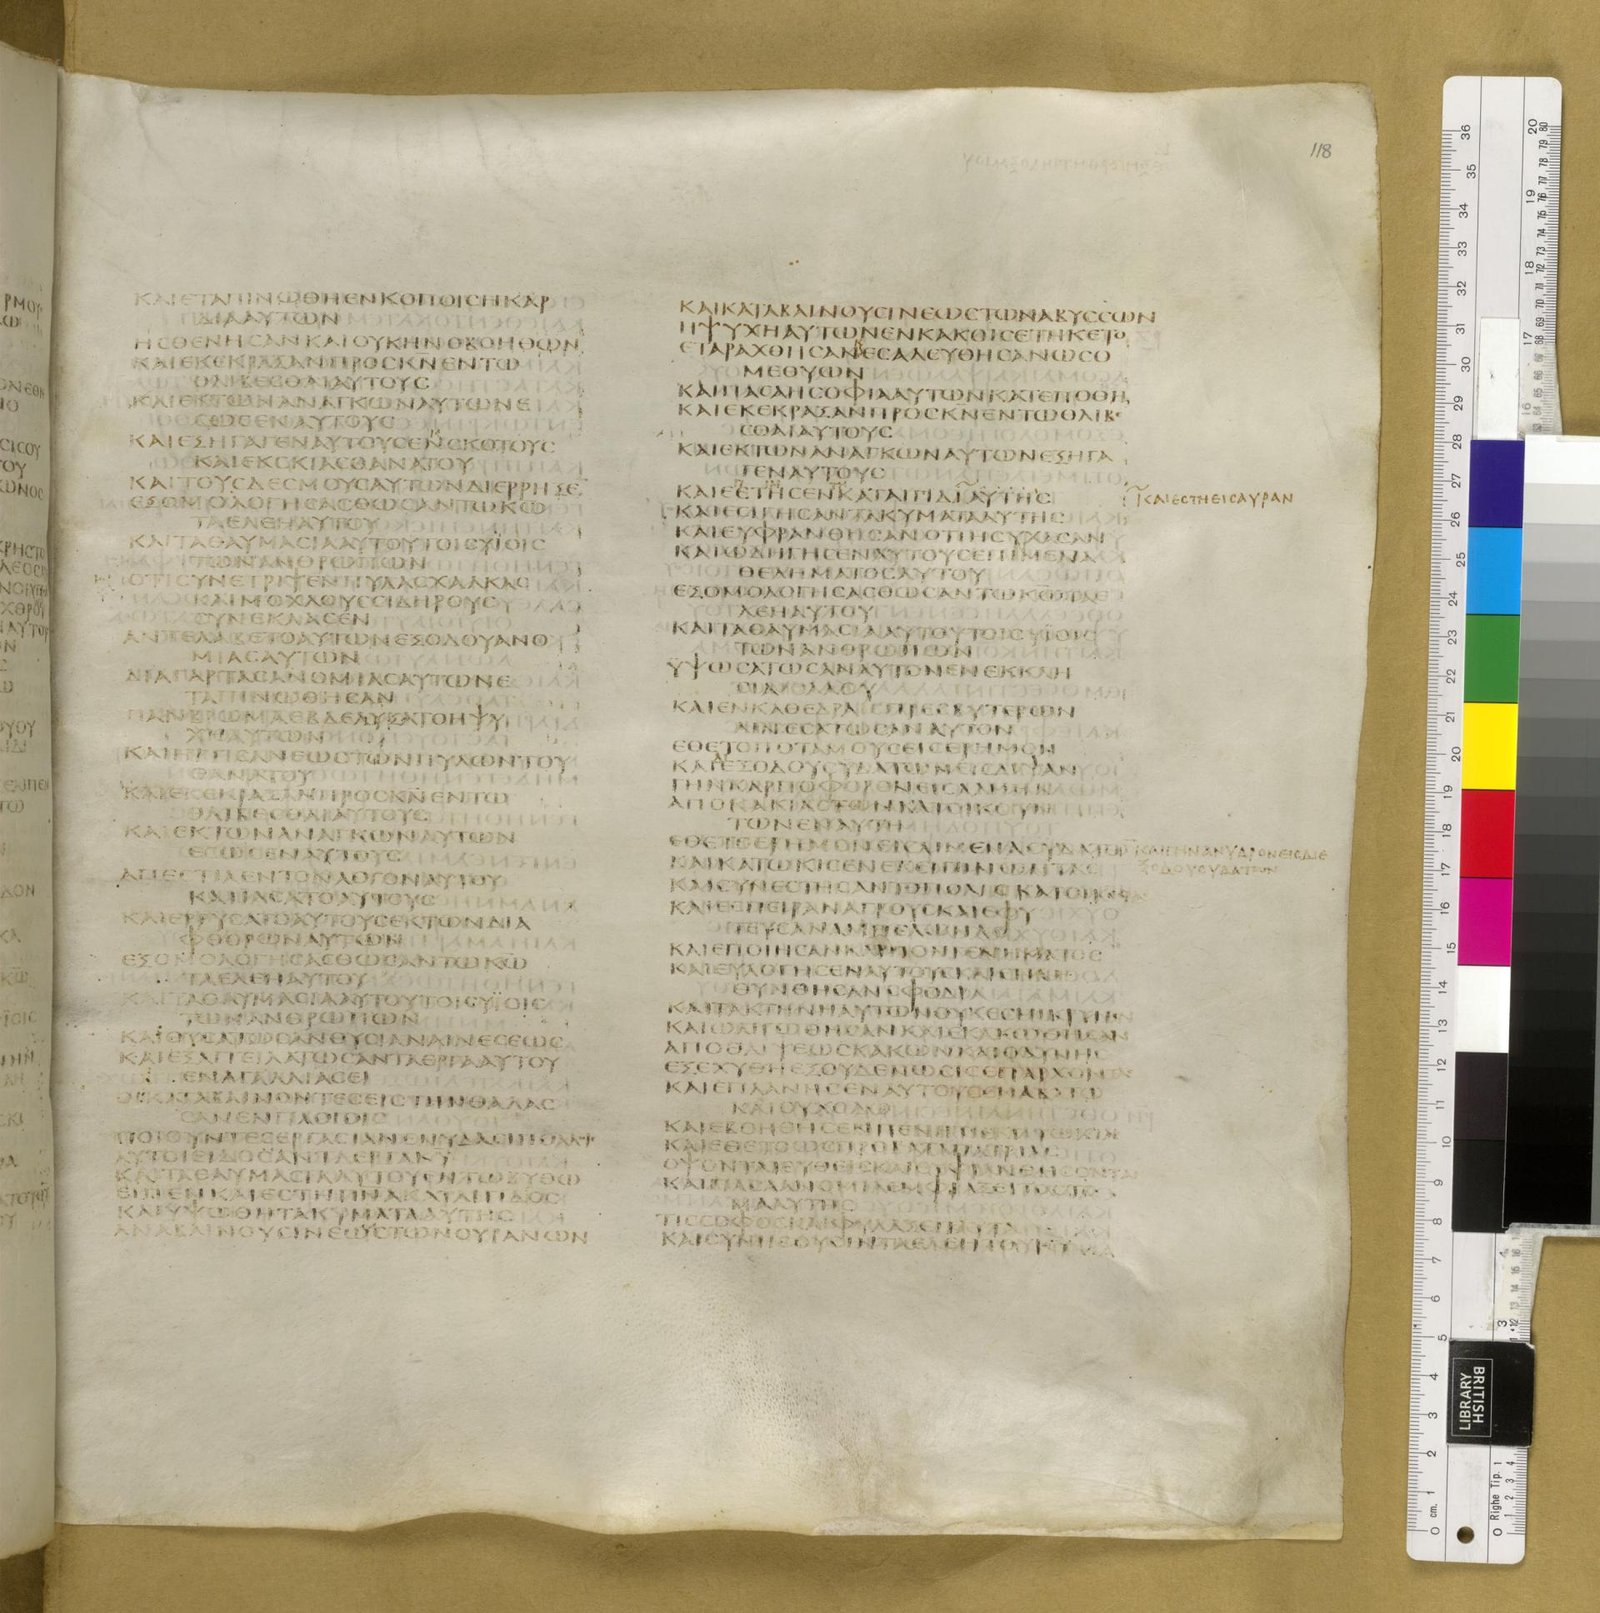 118
ΚΑΙΕΤΑΠΙΝΩΘΗΕΝΚΟΠΟΙϹΗΚΑΡ
ΔΙΑΑΥΤΩΝ
ΗϹΘΕΝΗϹΑΝΚΑΙΟΥΚΗΝΟΒΟΗΘΩΝ
ΚΑΙΕΚΕΚΡΑΞΑΝΠΡΟϹΚΝΕΝΤΩ
ΘΛΙΒΕϹΘΑΙΑΥΤΟΥϹ
ΚΑΙΕΚΤΩΝΑΝΑΓΚΩΝΑΥΤΩΝΕ
ϹΩϹΕΝΑΥΤΟΥϹ
ΚΑΙΕΞΗΓΑΓΕΝΑΥΤΟΥϹΕΝϹΚΟΤΟΥϹ
ΚΑΙΕΚϹΚΙΑϹΘΑΝΑΤΟΥ
ΚΑΙΤΟΥϹΔΕϹΜΟΥϹΑΥΤΩΝΔΙΕΡΡΗΞΕ
ΕΞΟΜΟΛΟΓΗϹΑϹΘΩϹΑΝΤΩΚΩ
ΤΑΕΛΕΗΑΥΤΟΥ
ΚΑΙΤΑΘΑΥΜΑϹΙΑΑΥΤΟΥΤΟΙϹΥΪΟΙϹ
ΤΩΝΑΝΘΡΩΠΩΝ
ΟΤΙϹΥΝΕΤΡΙΨΕΝΠΥΛΑϹΧΑΛΚΑϹ
ΚΑΙΜΟΧΛΟΥϹϹΙΔΗΡΟΥϹ
ϹΥΝΕΚΛΑϹΕΝ
ΑΝΤΕΛΑΒΕΤΟΑΥΤΩΝΕΞΟΔΟΥΑΝΟ
ΜΙΑϹΑΥΤΩΝ
ΔΙΑΓΑΡΤΑϹΑΝΟΜΙΑϹΑΥΤΩΝΕ
ΤΑΠΙΝΩΘΗϹΑΝ
ΠΑΝΒΡΩΜΑΕΒΔΕΛΥΞΑΤΟΗΨΥ
ΧΗΑΥΤΩΝ
ΚΑΙΗΓΓΙϹΑΝΕΩϹΤΩΝΠΥΛΩΝΤΟΥ
ΘΑΝΑΤΟΥ
ΚΑΙΕΚΕΚΡΑΞΑΝΠΡΟϹΚΝΕΝΤΩ
ΘΛΙΒΕϹΘΑΙΑΥΤΟΥϹ
ΚΑΙΕΚΤΩΝΑΝΑΓΚΩΝΑΥΤΩΝ
ΕϹΩϹΕΝΑΥΤΟΥϹ
ΑΠΕϹΤΙΛΕΝΤΟΝΛΟΓΟΝΑΥΤΟΥ
ΚΑΙΙΑϹΑΤΟΑΥΤΟΥϹ
ΚΑΙΕΡΡΥϹΑΤΟΑΥΤΟΥϹΕΚΤΩΝΔΙΑ
ΦΘΟΡΩΝΑΥΤΩΝ
ΕΞΟΜΟΛΟΓΗϹΑϹΘΩϹΑΝΤΩΚΩ
ΤΑΕΛΕΗΑΥΤΟΥ
ΚΑΙΤΑΘΑΥΜΑϹΙΑΑΥΤΟΥΤΟΙϹΥΪΟΙϹ
ΤΩΝΑΝΘΡΩΠΩΝ
ΚΑΙΘΥϹΑΤΩϹΑΝΘΥϹΙΑΝΑΙΝΕϹΕΩϹ
ΚΑΙΕΞΑΓΓΕΙΛΑΤΩϹΑΝΤΑΕΡΓΑΑΥΤΟΥ
ΕΝΑΓΑΛΛΙΑϹΕΙ
ΟΙΚΑΤΑΒΑΙΝΟΝΤΕϹΕΙϹΤΗΝΘΑΛΑϹ
ϹΑΝΕΝΠΛΟΙΟΙϹ
ΠΟΙΟΥΝΤΕϹΕΡΓΑϹΙΑΝΕΝΥΔΑϹΙΠΟΛΛ
ΑΥΤΟΙΕΙΔΟϹΑΝΤΑΕΡΓΑΚΥ
ΚΑΙΤΑΘΑΥΜΑϹΙΑΑΥΤΟΥΕΝΤΩΒΥΘΩ
ΕΙΠΕΝΚΑΙΕϹΤΗΠΝΑΚΑΤΑΙΓΙΔΟϹ
ΚΑΙΥΨΩΘΗΤΑΚΥΜΑΤΑΑΥΤΗϹ
ΑΝΑΒΑΙΝΟΥϹΙΝΕΩϹΤΩΝΟΥΡΑΝΩΝ
ΚΑΙΚΑΤΑΒΑΙΝΟΥϹΙΝΕΩϹΤΩΝΑΒΥϹϹΩΝ
ΗΨΥΧΗΑΥΤΩΝΕΝΚΑΚΟΙϹΕΤΗΚΕΤΟ
ΕΤΑΡΑΧΘΗϹΑΝΕϹΑΛΕΥΘΗϹΑΝΩϹΟ
ΜΕΘΥΩΝ
ΚΑΙΠΑϹΑΗϹΟΦΙΑΑΥΤΩΝΚΑΤΕΠΟΘΗ
ΚΑΙΕΚΕΚΡΑΞΑΝΠΡΟϹΚΝΕΝΤΩΘΛΙΒΕ
ϹΘΑΙΑΥΤΟΥϹ
ΚΑΙΕΚΤΩΝΑΝΑΓΚΩΝΑΥΤΩΝΕΞΗΓΑ
ΓΕΝΑΥΤΟΥϹ
ΚΑΙΕϹΤΗϹΕΝΚΑΤΑΙΓΙΔΙΑΥΤΗϹ
ΚΑΙΕϹΤΗΕΙϹΑΥΡΑΝ
ΚΑΙΕϹΙΓΗϹΑΝΤΑΚΥΜΑΤΑΑΥΤΗϹ
ΚΑΙΕΥΦΡΑΝΘΗϹΑΝΟΤΙΗϹΥΧΑϹΑΝ
ΚΑΙΩΔΗΓΗϹΕΝΑΥΤΟΥϹΕΠΙΛΙΜΕΝΑ
ΘΕΛΗΜΑΤΟϹΑΥΤΟΥ
ΕΞΟΜΟΛΟΓΗϹΑϹΘΩϹΑΝΤΩΚΩΤΑΕ
ΛΕΗΑΥΤΟΥ
ΚΑΙΤΑΘΑΥΜΑϹΙΑΑΥΤΟΥΤΟΙϹΥΪΟΙϹ
ΤΩΝΑΝΘΡΩΠΩΝ
ΥΨΩϹΑΤΩϹΑΝΑΥΤΟΝΕΝΕΚΚΛΗ
ϹΙΑΛΑΟΥ
ΚΑΙΕΝΚΑΘΕΔΡΑΠΡΕϹΒΥΤΕΡΩΝ
ΑΙΝΕϹΑΤΩϹΑΝΑΥΤΟΝ
ΕΘΕΤΟΠΟΤΑΜΟΥϹΕΙϹΕΡΗΜΟΝ
ΚΑΙΕΞΟΔΟΥϹΥΔΑΤΩΝΕΙϹΔΙΨΑΝ
ΓΗΝΚΑΡΠΟΦΟΡΟΝΕΙϹΑΛΜΗΝ
ΑΠΟΚΑΚΙΑϹΤΩΝΚΑΤΟΙΚΟΥΝ
ΤΩΝΕΝΑΥΤΗ
ΕΘΕΤΟΕΡΗΜΟΝΕΙϹΛΙΜΕΝΑϹΥΔΑΤΩ
ΚΑΙΓΗΝΑΝΥΔΡΟΝΕΙϹΔΙΕ
ΞΟΔΟΥϹΥΔΑΤΩΝ
ΚΑΙΚΑΤΩΚΙϹΕΝΕΚΕΙΠΙΝΩΝΤΑϹ
ΚΑΙϹΥΝΕϹΤΗϹΑΝΤΟΠΟΛΙϹΚΑΤΟΙΚ
ΚΑΙΕϹΠΕΙΡΑΝΑΓΡΟΥϹΚΑΙΕΦΥ
ΤΕΥϹΑΝΑΜΠΕΛΩΝΑϹ
ΚΑΙΕΠΟΙΗϹΑΝΚΑΡΠΟΝΓΕΝΗΜΑΤΟϹ
ΚΑΙΕΥΛΟΓΗϹΕΝΑΥΤΟΥϹΚΑΙΕΠΛΗ
ΘΥΝΘΗϹΑΝϹΦΟΔΡΑ
ΚΑΙΤΑΚΤΗΝΗΑΥΤΩΝΟΥΚΕϹΜΙΚΡΥΝΕΝ
ΚΑΙΩΛΙΓΩΘΗϹΑΝΚΑΙΕΚΑΚΩΘΗϹΑΝ
ΑΠΟΘΛΙΨΕΩϹΚΑΚΩΝΚΑΙΟΔΥΝΗϹ
ΕΞΕΧΥΘΗΕΞΟΥΔΕΝΩϹΙϹΕΠΑΡΧΟΝΤΑϹ
ΚΑΙΕΠΛΑΝΗϹΕΝΑΥΤΟΥϹΕΝΑΒΑΤΩ
ΚΑΙΟΥΧΟΔΩ
ΚΑΙΕΒΟΗΘΗϹΕΝΠΕΝΗΤΙΕΚΠΤΩΧΙΑϹ
ΚΑΙΕΘΕΤΟΩϹΠΡΟΒΑΤΑΠΑΤΡΙΑϹ
ΟΨΟΝΤΑΙΕΥΘΕΙϹΚΑΙΕΥΦΡΑΝΘΗϹΟΝΤΑΙ
ΚΑΙΠΑϹΑΑΝΟΜΙΑΕΜΦΡΑΞΕΙΤΟϹΤΟ
ΜΑΑΥΤΗϹ
ΤΙϹϹΟΦΟϹΚΑΙΦΥΛΑΞΕΙΤΑΥΤΑ
ΚΑΙϹΥΝΗϹΟΥϹΙΝΤΑΕΛΕΗΤΟΥΚΥ
BRITISH
LIBRARY
Righe Tip. 1
cm. 1